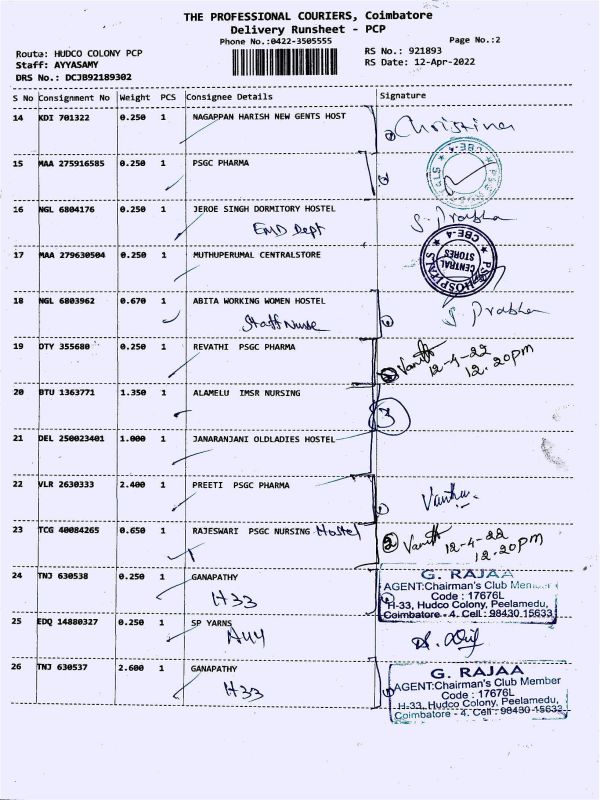 THE PROFESSIONAL COURIERS, Coimbatore
Delivery Runsheet - PCP
Phone No.:0422-3505555
Page No.:2
Route: HUDCO COLONY PCP
RS No.: 921893
Staff: AYYASAMY
RS Date: 12-Apr-2022
DRS No.: DCJB92189302
S No Consignment No Weight PCS Consignee Details Signature
14 KDI 701322 0.250 1 NAGAPPAN HARISH NEW GENTS HOST
Christina
15 MAA 275916585 0.250 1 PSGC PHARMA
CBE-4
16 NGL 6804176 0.250 1 JEROE SINGH DORMITORY HOSTEL
S. Prabha
EMD Dept
17 MAA 279630504 0.250 1 MUTHUPERUMAL CENTRALSTORE
PSG HOSPITALS
CENTRAL STORES
CBE-4
18 NGL 6803962 0.670 1 ABITA WORKING WOMEN HOSTEL
Staff Nurse
S. Prabha
19 DTY 355680 0.250 1 REVATHI PSGC PHARMA
12-4-22
12.20pm
20 BTU 1363771 1.350 1 ALAMELU IMSR NURSING
3
21 DEL 250023401 1.000 1 JANARANJANI OLDLADIES HOSTEL
22 VLR 2630333 2.400 1 PREETI PSGC PHARMA
23 TCG 40084265 0.650 1 RAJESWARI PSGC NURSING Hostel
2
12-4-22
12.20pm
24 TNJ 630538 0.250 1 GANAPATHY
H33
G. RAJAA
AGENT:Chairman's Club Member
Code : 17676L
H-33, Hudco Colony, Peelamedu,
Coimbatore - 4. Cell : 98430 15633
25 EDQ 14880327 0.250 1 SP YARNS
26 TNJ 630537 2.600 1 GANAPATHY
H33
G. RAJAA
AGENT:Chairman's Club Member
Code : 17676L
H-33, Hudco Colony, Peelamedu,
Coimbatore - 4. Cell : 98430 15633